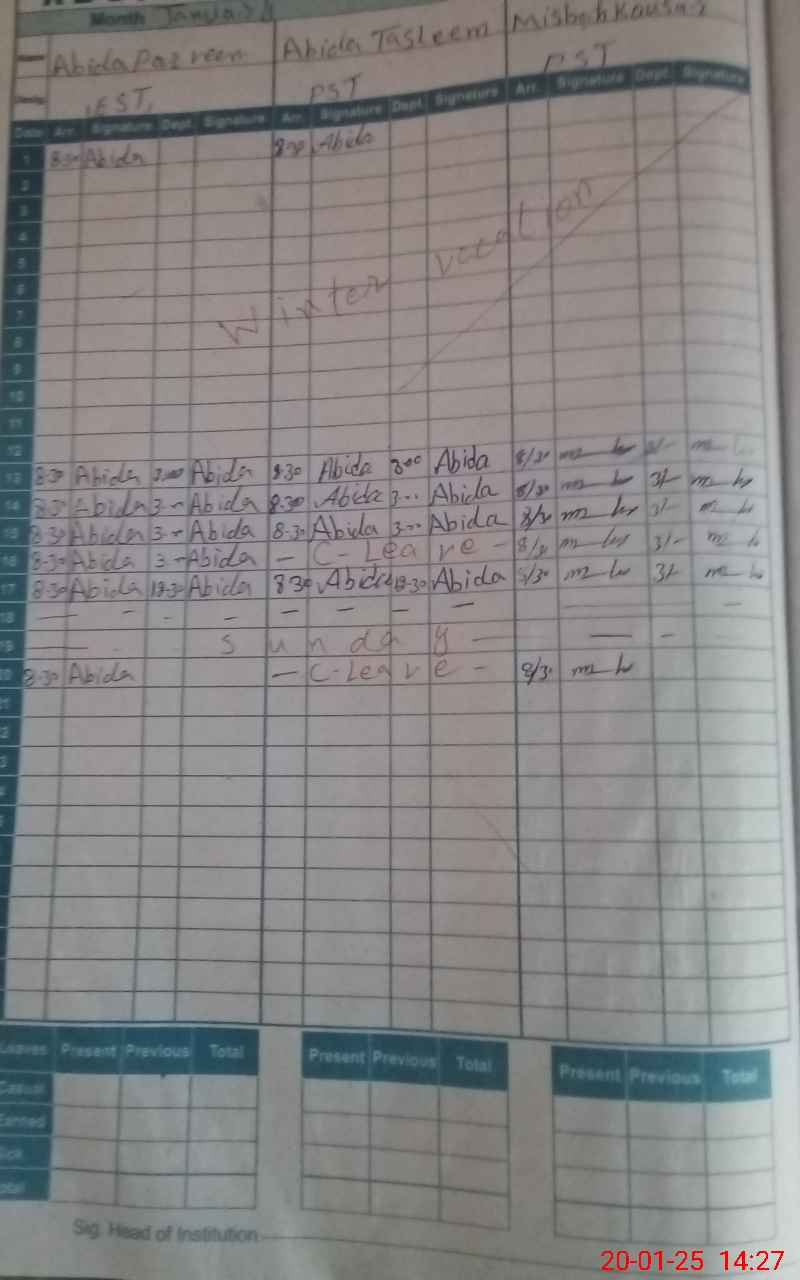 Month January
Abida Parveen Abida Tasleem Misbah Kausar
EST. PST PST
Date Arr. Signature Dept. Signature Arr. Signature Dept. Signature Arr. Signature Dept. Signature
1 8:30 Abida 8:30 Abida
2
3
4
5
6
7
Winter vacation
8
9
10
11
12
13 8:30 Abida 3:00 Abida 8:30 Abida 3:00 Abida 8/30
14 8:30 Abida 3- Abida 8:30 Abida 3-- Abida 8/30 3/-
15 8:30 Abida 3- Abida 8:30 Abida 3-- Abida 8/30 3/-
16 8:30 Abida 3- Abida - C-Leave - 8/30 3/-
17 8:30 Abida 12:30 Abida 8:30 Abida 12:30 Abida 8/30 3/-
18 - - - - - - - - -
19 - sunday - - -
20 8:30 Abida - C-Leave - 8/30
Leaves Present Previous Total Present Previous Total Present Previous Total
Casual
Earned
Sick
Total
Sig. Head of Institution
20-01-25 14:27